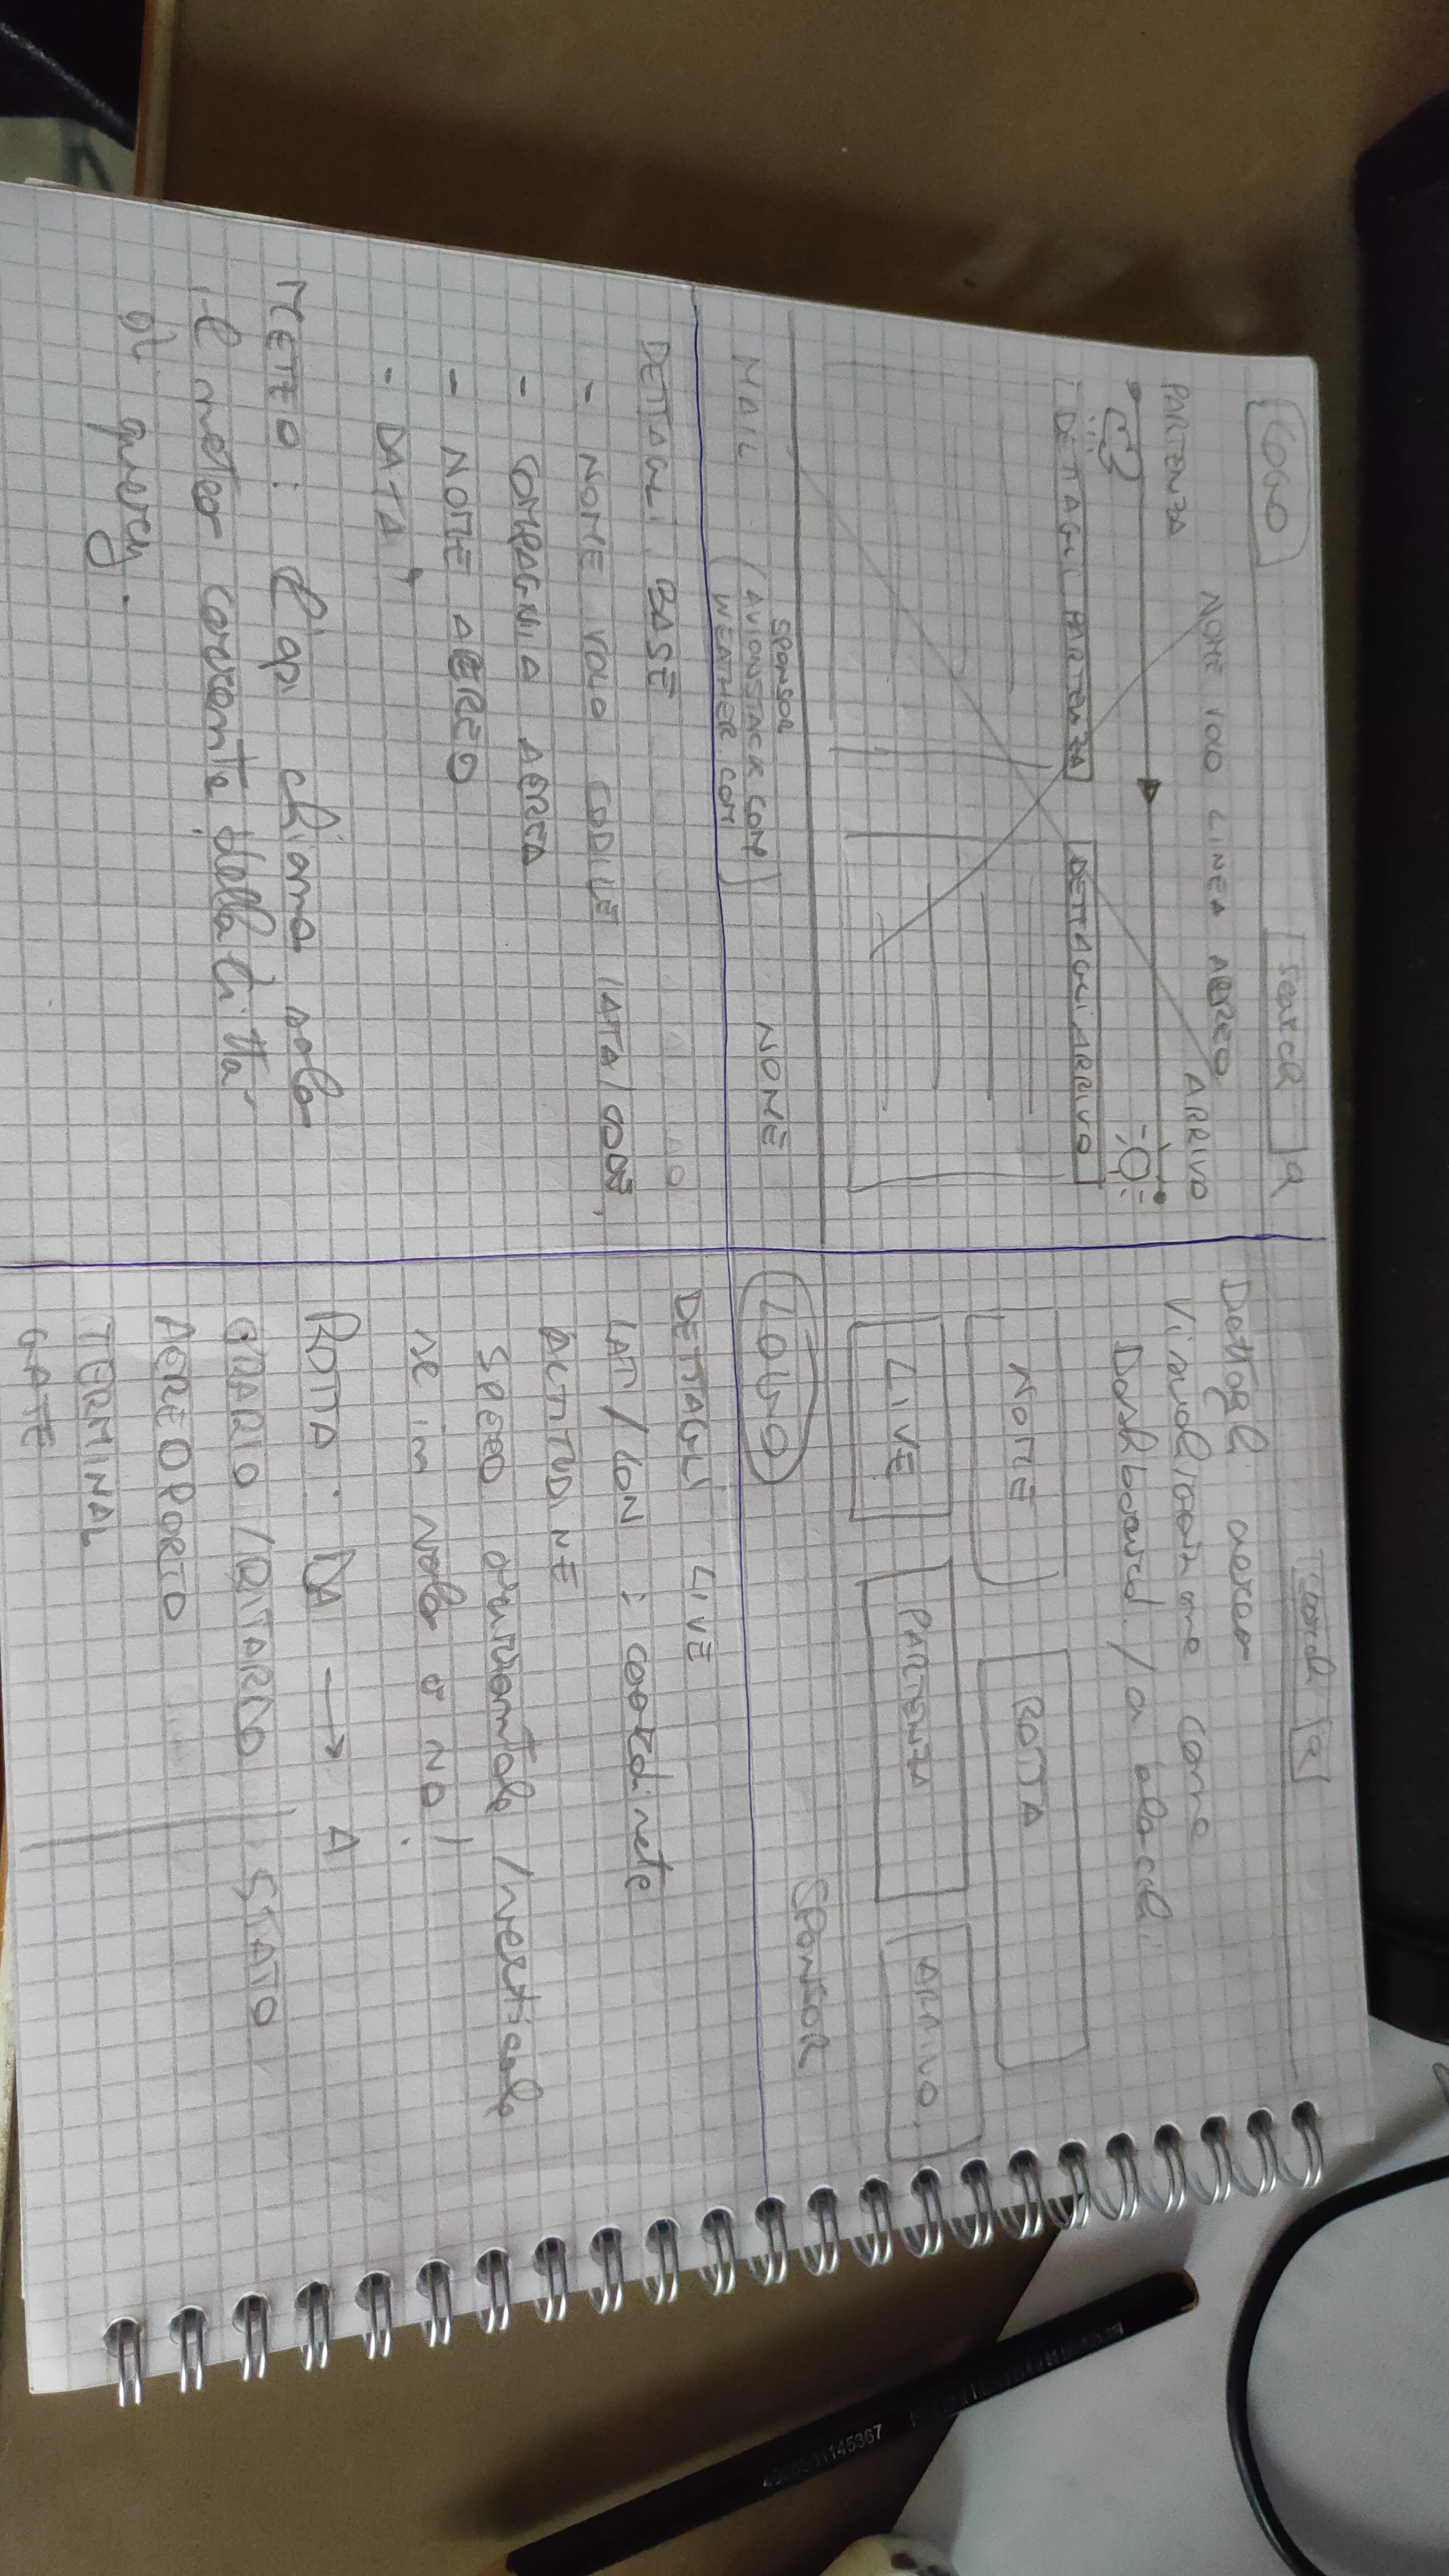 LOGO
search
NOME VOLO LINEA AEREO
PARTENZA
ARRIVO
DETTAGLI PARTENZA
DETTAGLI ARRIVO
SPONSOR
MAIL (AVIONSTACK COM) NOME
(WEATHER. COM)
DETTAGLI BASE
- NOME VOLO CODICE IATA/
- COMPAGNIA AEREA
- NOME AEREO
- DATA,
METEO: l'api chiama solo
il meteo corrente della città
di query.
Dettagli aereo
Visualizzazione come
Dashboard / a blocchi
NOME
ROTTA
LIVE
PARTENZA
ARRIVO
SPONSOR
LOGO
DETTAGLI LIVE
LAT/LON : coordinate
ALTITUDINE
SPEED orizzontale/verticale
se in volo o NO!
ROTTA: DA → A
ORARIO/RITARDO
STATO
AEREOPORTO
TERMINAL
GATE
4005401145367